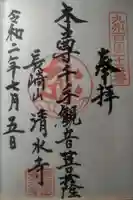 奉拝
本尊千手観音菩薩
長崎山清水寺
令和二年七月五日